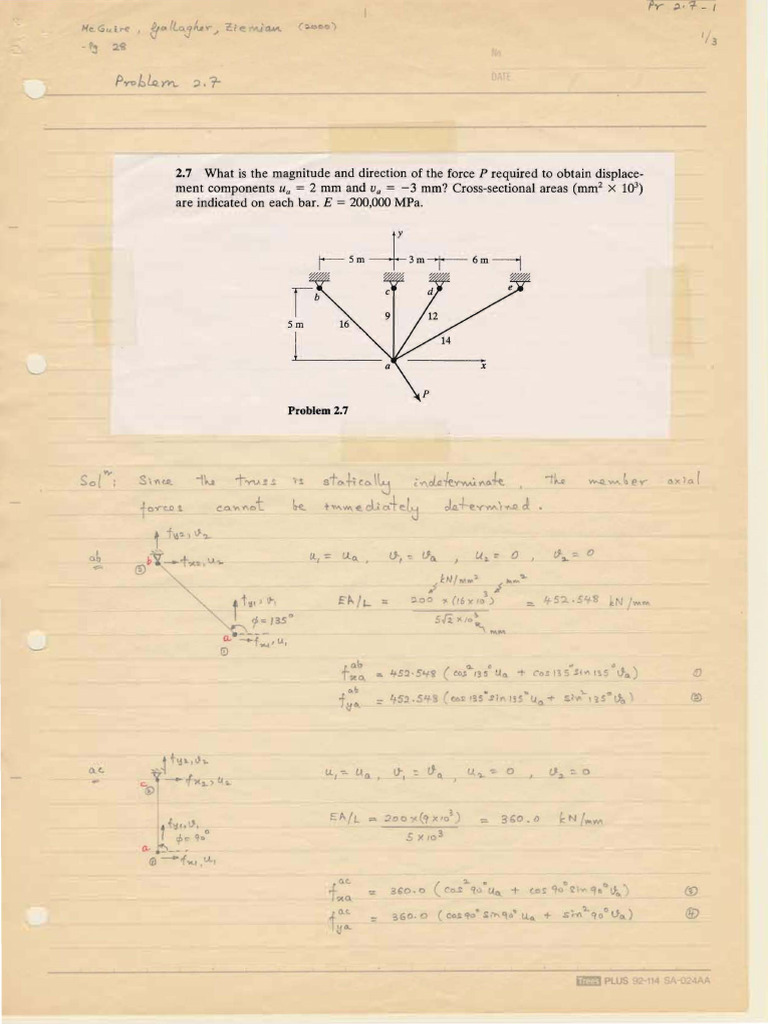 Pr 2.7-1
McGuire, Gallagher, Ziemian (2000)
1/3
- Pg 28
No
Problem 2.7
DATE
2.7 What is the magnitude and direction of the force P required to obtain displace-
ment components uₐ = 2 mm and vₐ = −3 mm? Cross-sectional areas (mm² × 10³)
are indicated on each bar. E = 200,000 MPa.
y
5 m 3 m 6 m
b c d e
5 m 16 9 12
14
a x
P
Problem 2.7
Solⁿ: Since the truss is statically indeterminate, the member axial
forces cannot be immediately determined.
fy2, v2
ab b fx2, u2 u₁ = uₐ, v₁ = vₐ, u₂ = 0, v₂ = 0
②
kN/mm² mm²
fy1, v1 EA/L = 200 × (16×10³) / 5√2 × 10³ = 452.548 kN/mm
φ = 135° mm
a fx1, u1
①
f^ab_xa = 452.548 (cos²135° uₐ + cos135° sin135° vₐ) ①
f^ab_ya = 452.548 (cos135° sin135° uₐ + sin²135° vₐ) ②
fy2, v2
ac c fx2, u2 u₁ = uₐ, v₁ = vₐ, u₂ = 0, v₂ = 0
②
fy1, v1 EA/L = 200×(9×10³) / 5×10³ = 360.0 kN/mm
φ = 90°
a
① fx1, u1
f^ac_xa = 360.0 (cos²90° uₐ + cos90° sin90° vₐ) ③
f^ac_ya = 360.0 (cos90° sin90° uₐ + sin²90° vₐ) ④
Trees PLUS 92-114 SA-024AA